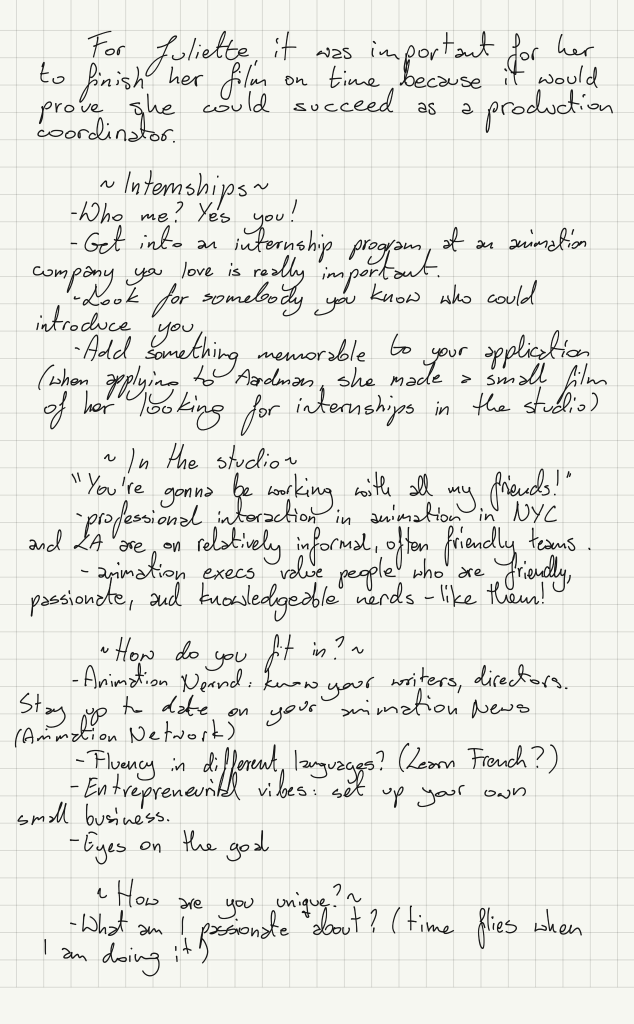 For Juliette, it was important for her
to finish her film on time because it would
prove she could succeed as a production
coordinator.
~ Internships ~
-Who me? Yes you!
- Get into an internship program, at an animation
company you love is really important.
-Look for somebody you know who could
introduce you
-Add something memorable to your application
(when applying to Aardman, she made a small film
of her looking for internships in the studio)
~ In the studio ~
"You're gonna be working with all my friends!"
-professional interaction in animation in NYC
and LA are on relatively informal, often friendly teams.
- animation execs value people who are friendly,
passionate, and knowledgeable nerds - like them!
~ How do you fit in? ~
-Animation Nernd: know your writers, directors.
Stay up to date on your animation News
(Animation Network)
- Fluency in different languages? (Learn French?)
- Entrepreneurial vibes: set up your own
small business.
- Eyes on the goal
~ How are you unique? ~
-What am I passionate about? (time flies when
I am doing it)